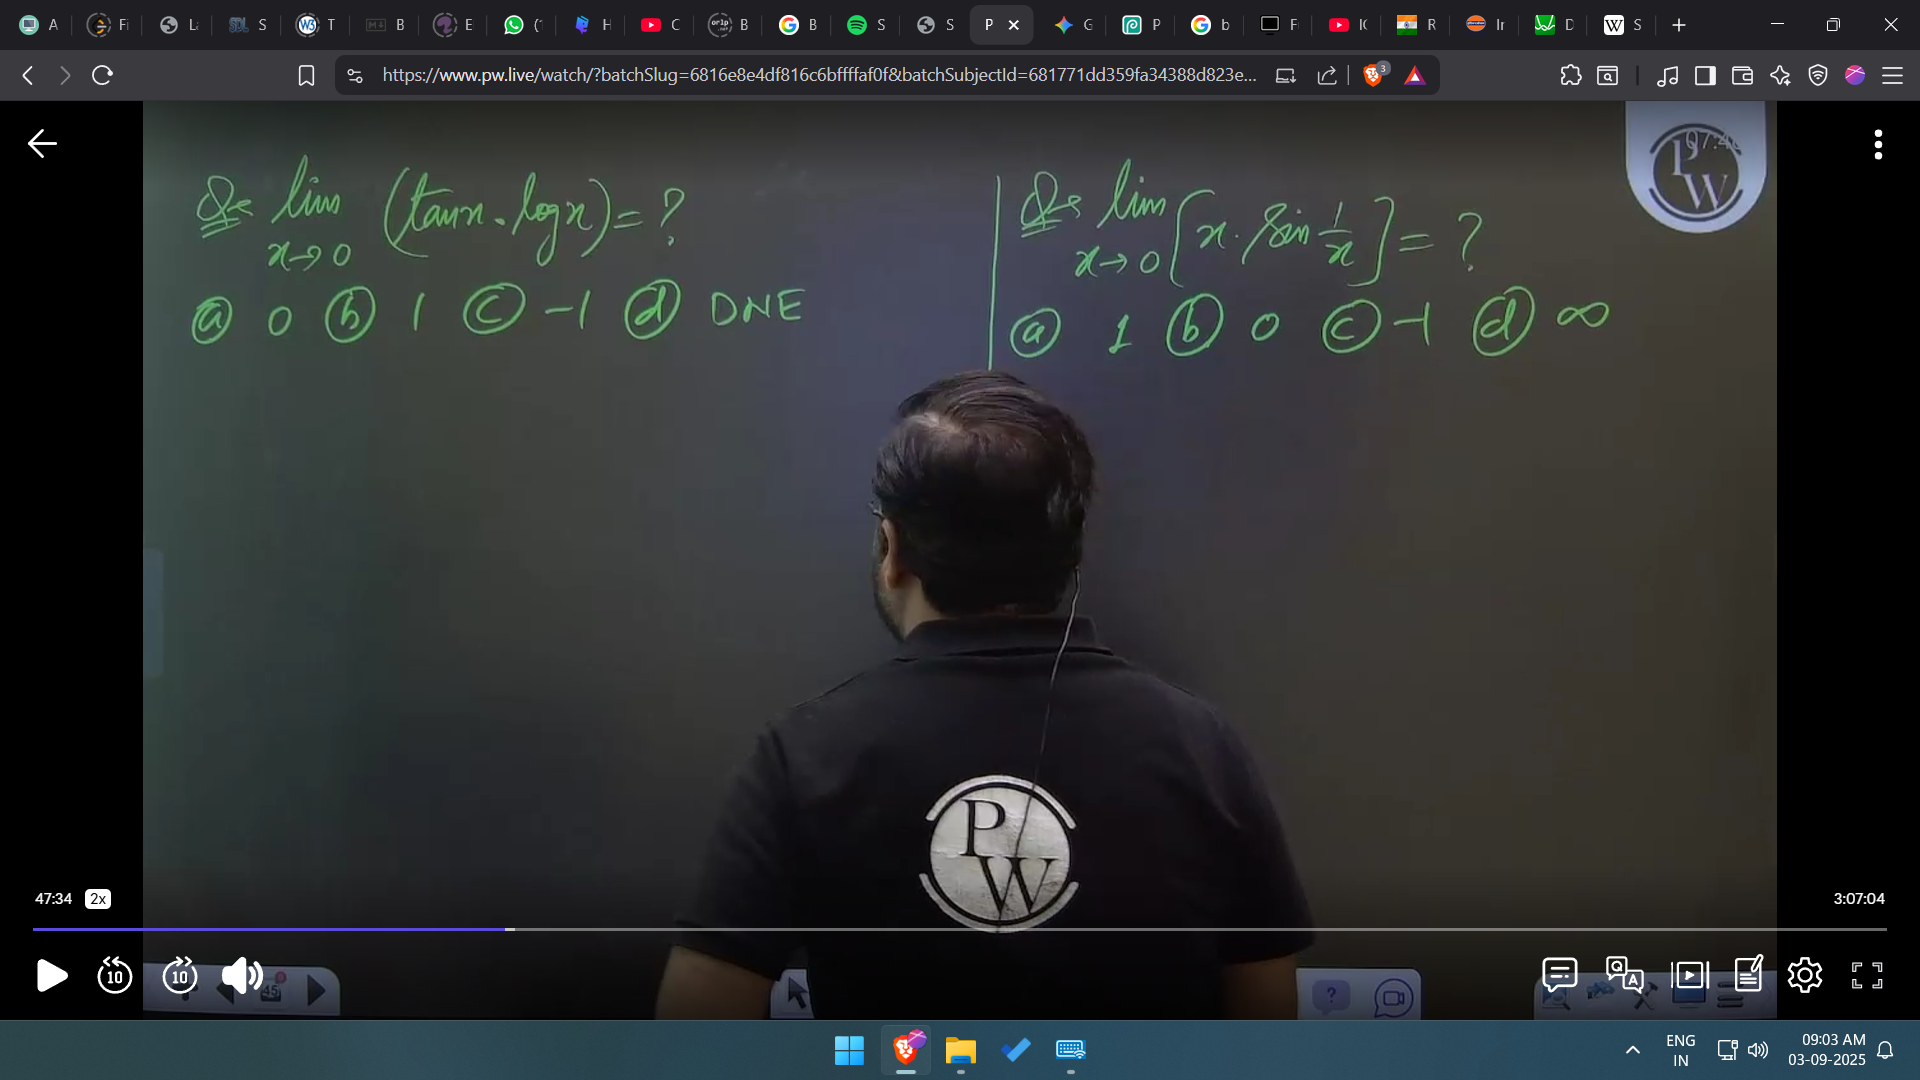 A Fi La S T B E (1 H C B B S S P G P b Fr IC R Ir D S
https://www.pw.live/watch/?batchSlug=6816e8e4df816c6bffffaf0f&batchSubjectId=681771dd359fa34388d823e... 3
07:4
PW
Q= lim x→0 (tanx · logx) = ?
ⓐ 0 ⓑ 1 ⓒ -1 ⓓ DNE
Q= lim x→0 [x · sin 1/x] = ?
ⓐ 1 ⓑ 0 ⓒ -1 ⓓ ∞
PW
47:34 2x 3:07:04
10 10 45
ENG
IN
09:03 AM
03-09-2025